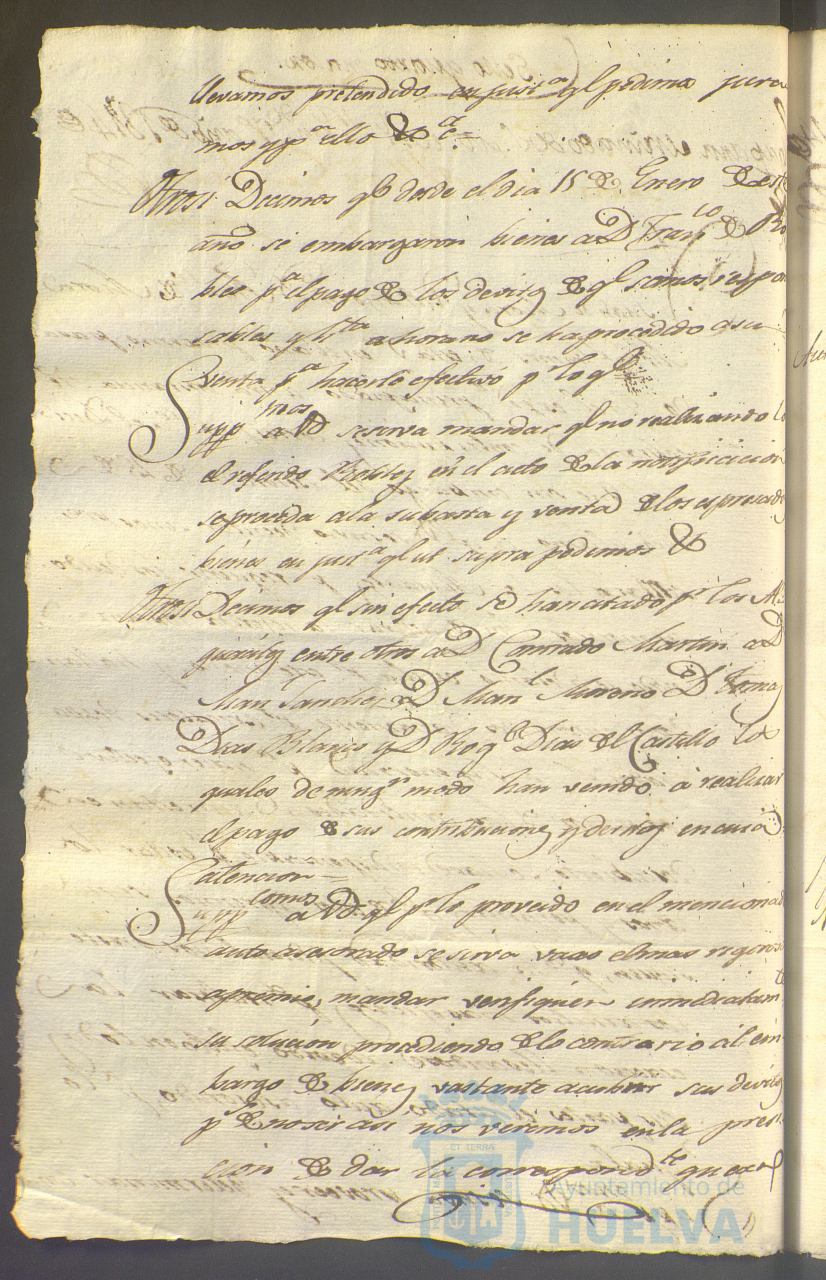 llevamos pretendido en just.a q.l pedimos jura
mos y p.a ello &.a
Otrosi Decimos q.e desde el dia 15 de Enero de est
año se embargaron bienes a D. Fran.co de Ro
bles p.a el pago de los devitos de q.l somos respon
sables y h.ta ahora no se ha procedido a su
venta p.a hacerlo efectivo p.r lo q.l
Supp.mos a Vd se sirva mandar q.l no realizando lo
el referido Robles en el acto de la notificacion
se proceda a la subasta y venta de los espresados
bienes en just.a q.l ut supra pedimos &
Otrosi Decimos q.l sin efecto se han citado p.r los
entre otros a D. Conrado Martin a D.
Man.l Sanchez a D. Man.l Moreno D. Tomas
Dias Blanco y D. Roq.e Dias del Castillo los
quales de ning.n modo han venido a realizar
el pago de sus contribuciones y demas en cuia
atencion
Supp.comos a Vd q.l p.r lo proveido en el mencionad
auto asesorado se sirva vaxo el mas rigoroso
apremio, mandar verifiquen inmediatam.te
su solucion procediendo de lo contrario al em
bargo de bienes vastante a cubrir sus devitos
p.s de no ser asi nos veremos en la preci
cion de dar la correspond.te quexa
ET TERRAE
Ayuntamiento de
HUELVA